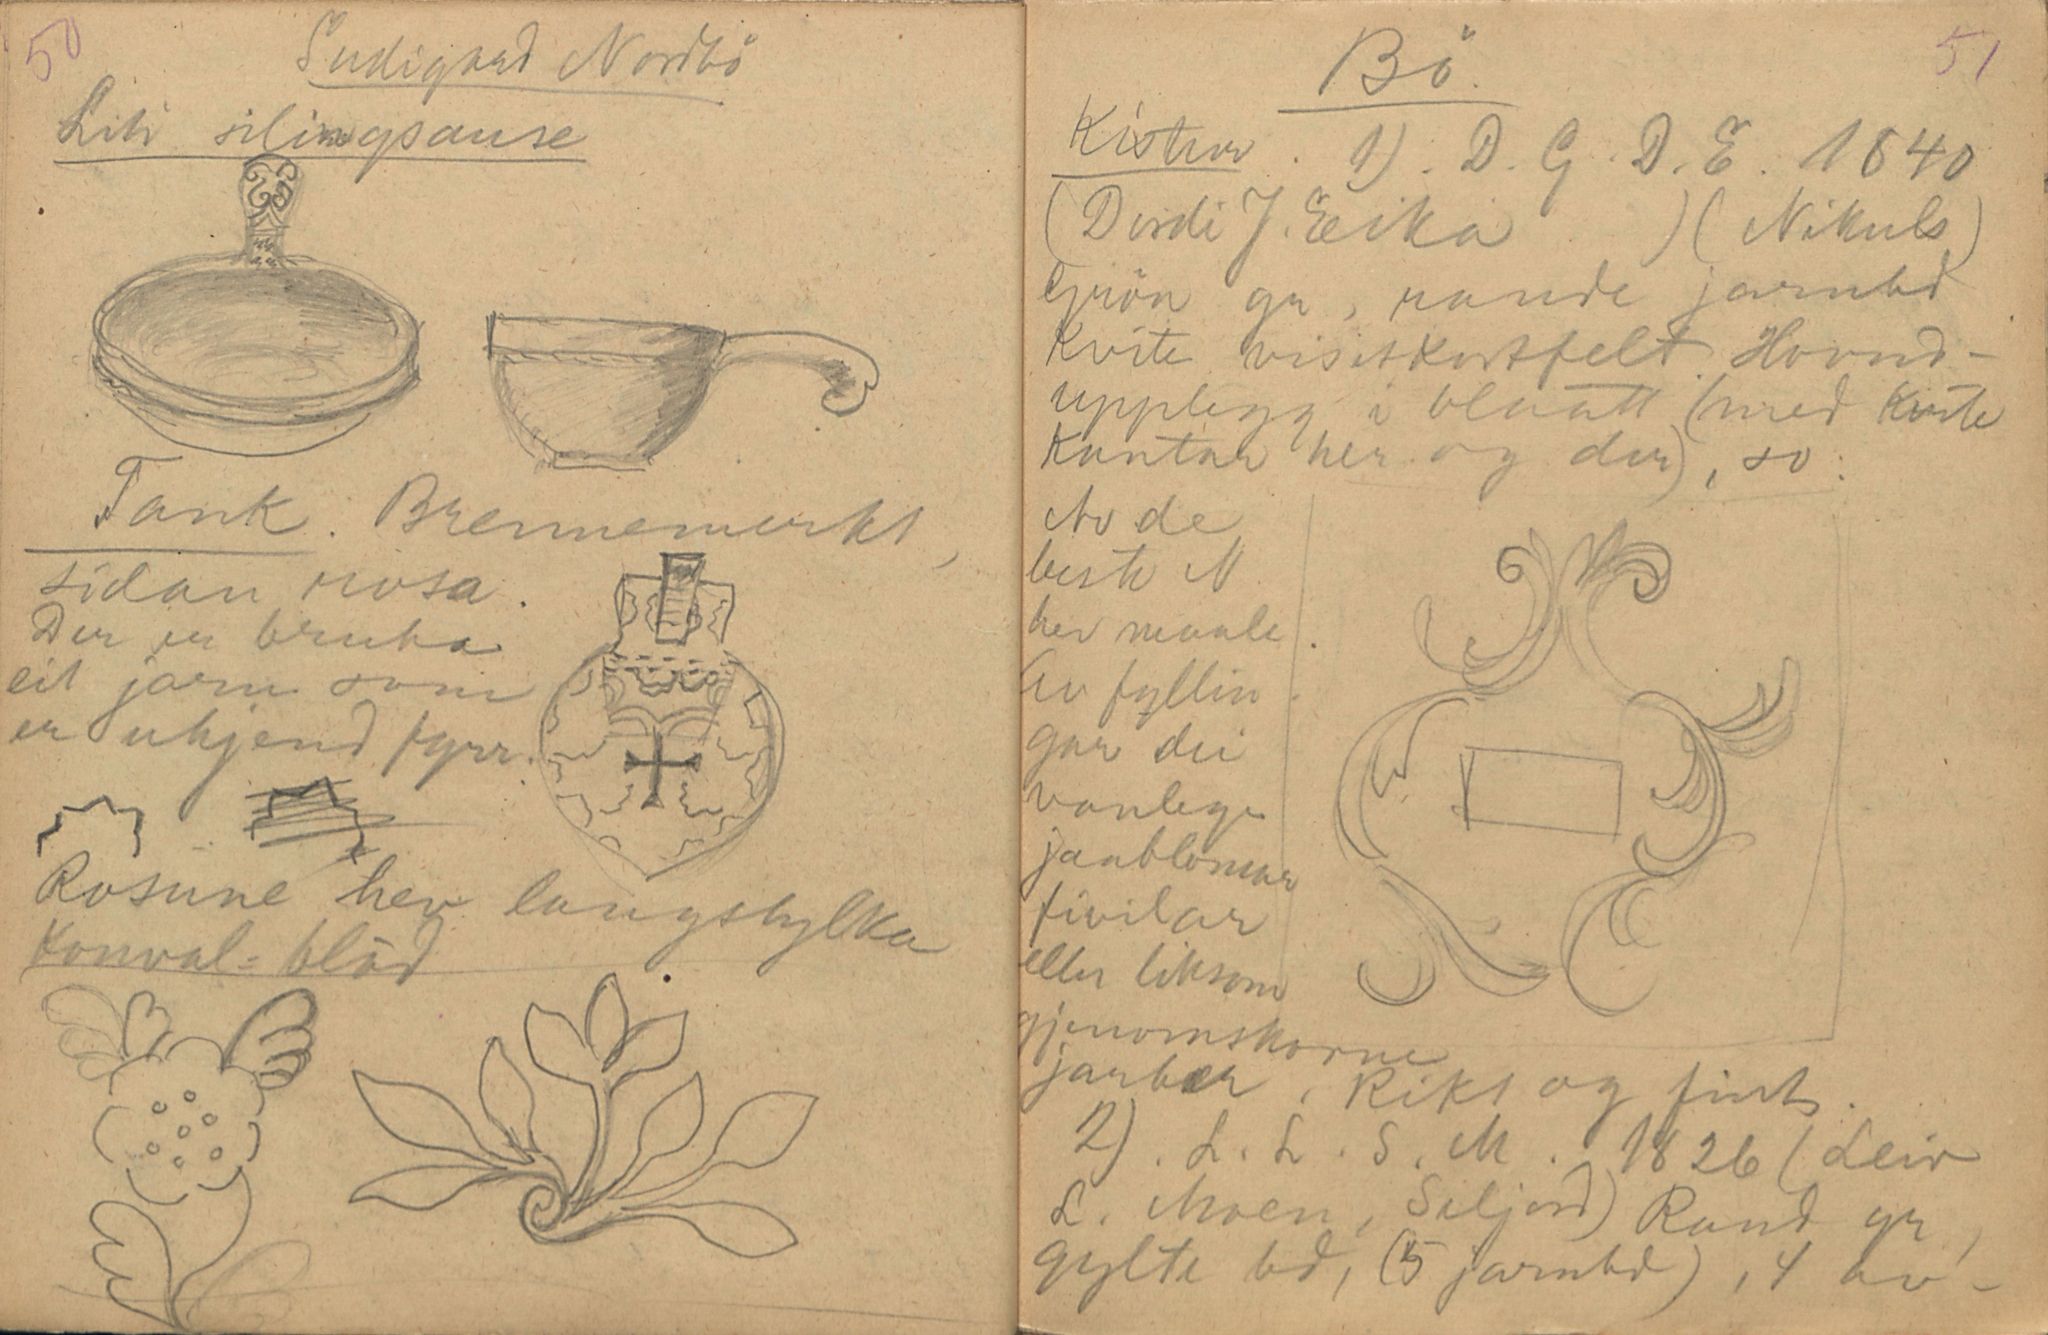 50
Sudigard Nordbö
Liti silingsause
Tank. Brennemerkt,
sidan rosa.
Der er bruka
eit jarn som
er ukjend fyrr.
Rosune hev langstylka
Konval-blad
51
Bö.
Kistur. 1). D. G. D. E. 1840
(Dordi J. Eika ) (Nikuls)
Grön gr, raude jarnbd
Kvite visitkortfelt. Hovud-
upplegg i blaatt (med kvite
Kantar her og der), so:
Av de
beste N
hev maale.
Av fyllin
gar dei
vanlege
jaablomar
fivilar
eller liksom
gjenomskorne
jarbær. Rikt og fint.
2). L. L. S. M. 1826 (Leiv
L. Moen, Seljord) Raud gr,
gylte bd, (5 jarnbd), 4 av-